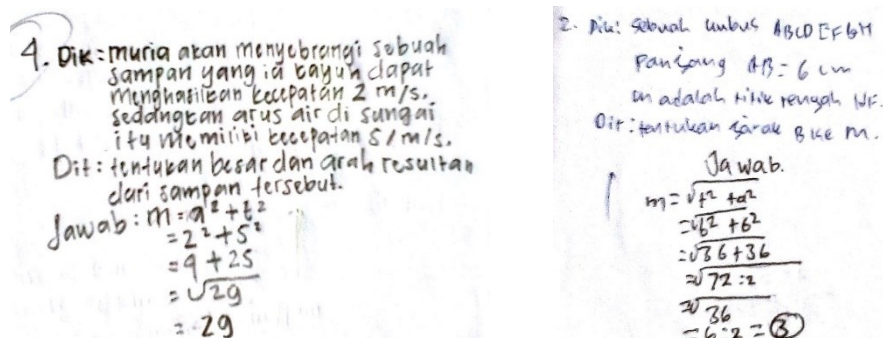 4. Dik: muria akan menyebrangi sebuah
sampan yang ia kayuh dapat
menghasilkan kecepatan 2 m/s.
sedangkan arus air di sungai
itu memiliki kecepatan 5/m/s.
Dit: tentukan besar dan arah resultan
dari sampan tersebut.
Jawab: m = a² + t²
= 2² + 5²
= 4 + 25
= √29
= 29
2. Dik: sebuah kubus ABCD EFGH
Panjang AB = 6 cm
m adalah titik tengah
Dit: tentukan jarak B ke m.
Jawab.
m = √t² + a²
= √6² + 6²
= √36 + 36
= √72 : 2
= √36
= 6 : 2 = 3